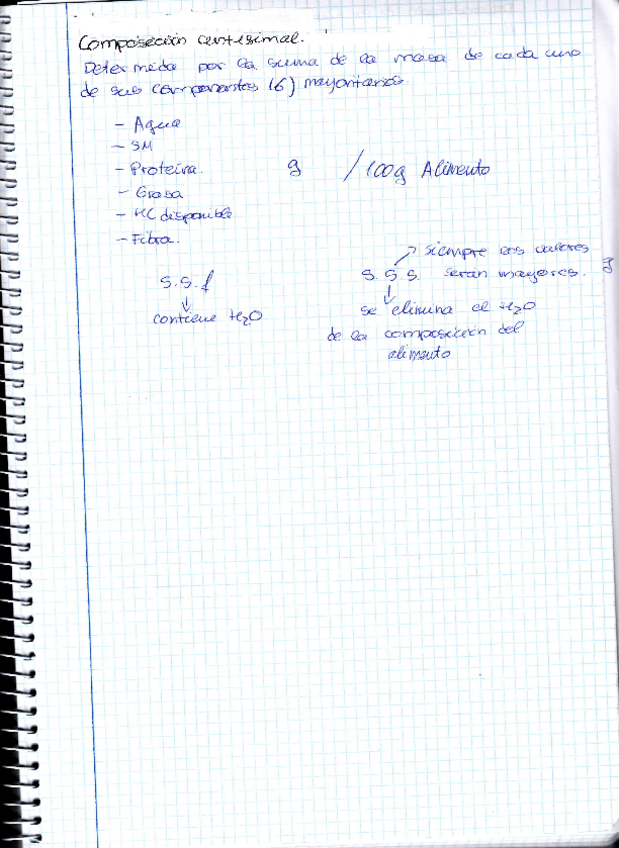 Composición centesimal.
Determinada por la suma de la masa de cada uno
de sus componentes (6) mayoritarios.
- Agua
- SM
- Proteína.
g /100g Alimento
- Grasa
- HC disponible
- Fibra.
→ siempre los valores
s.s.f
s.s.s. serán mayores.
contiene H2O
se elimina el H2O
de la composición del
alimento